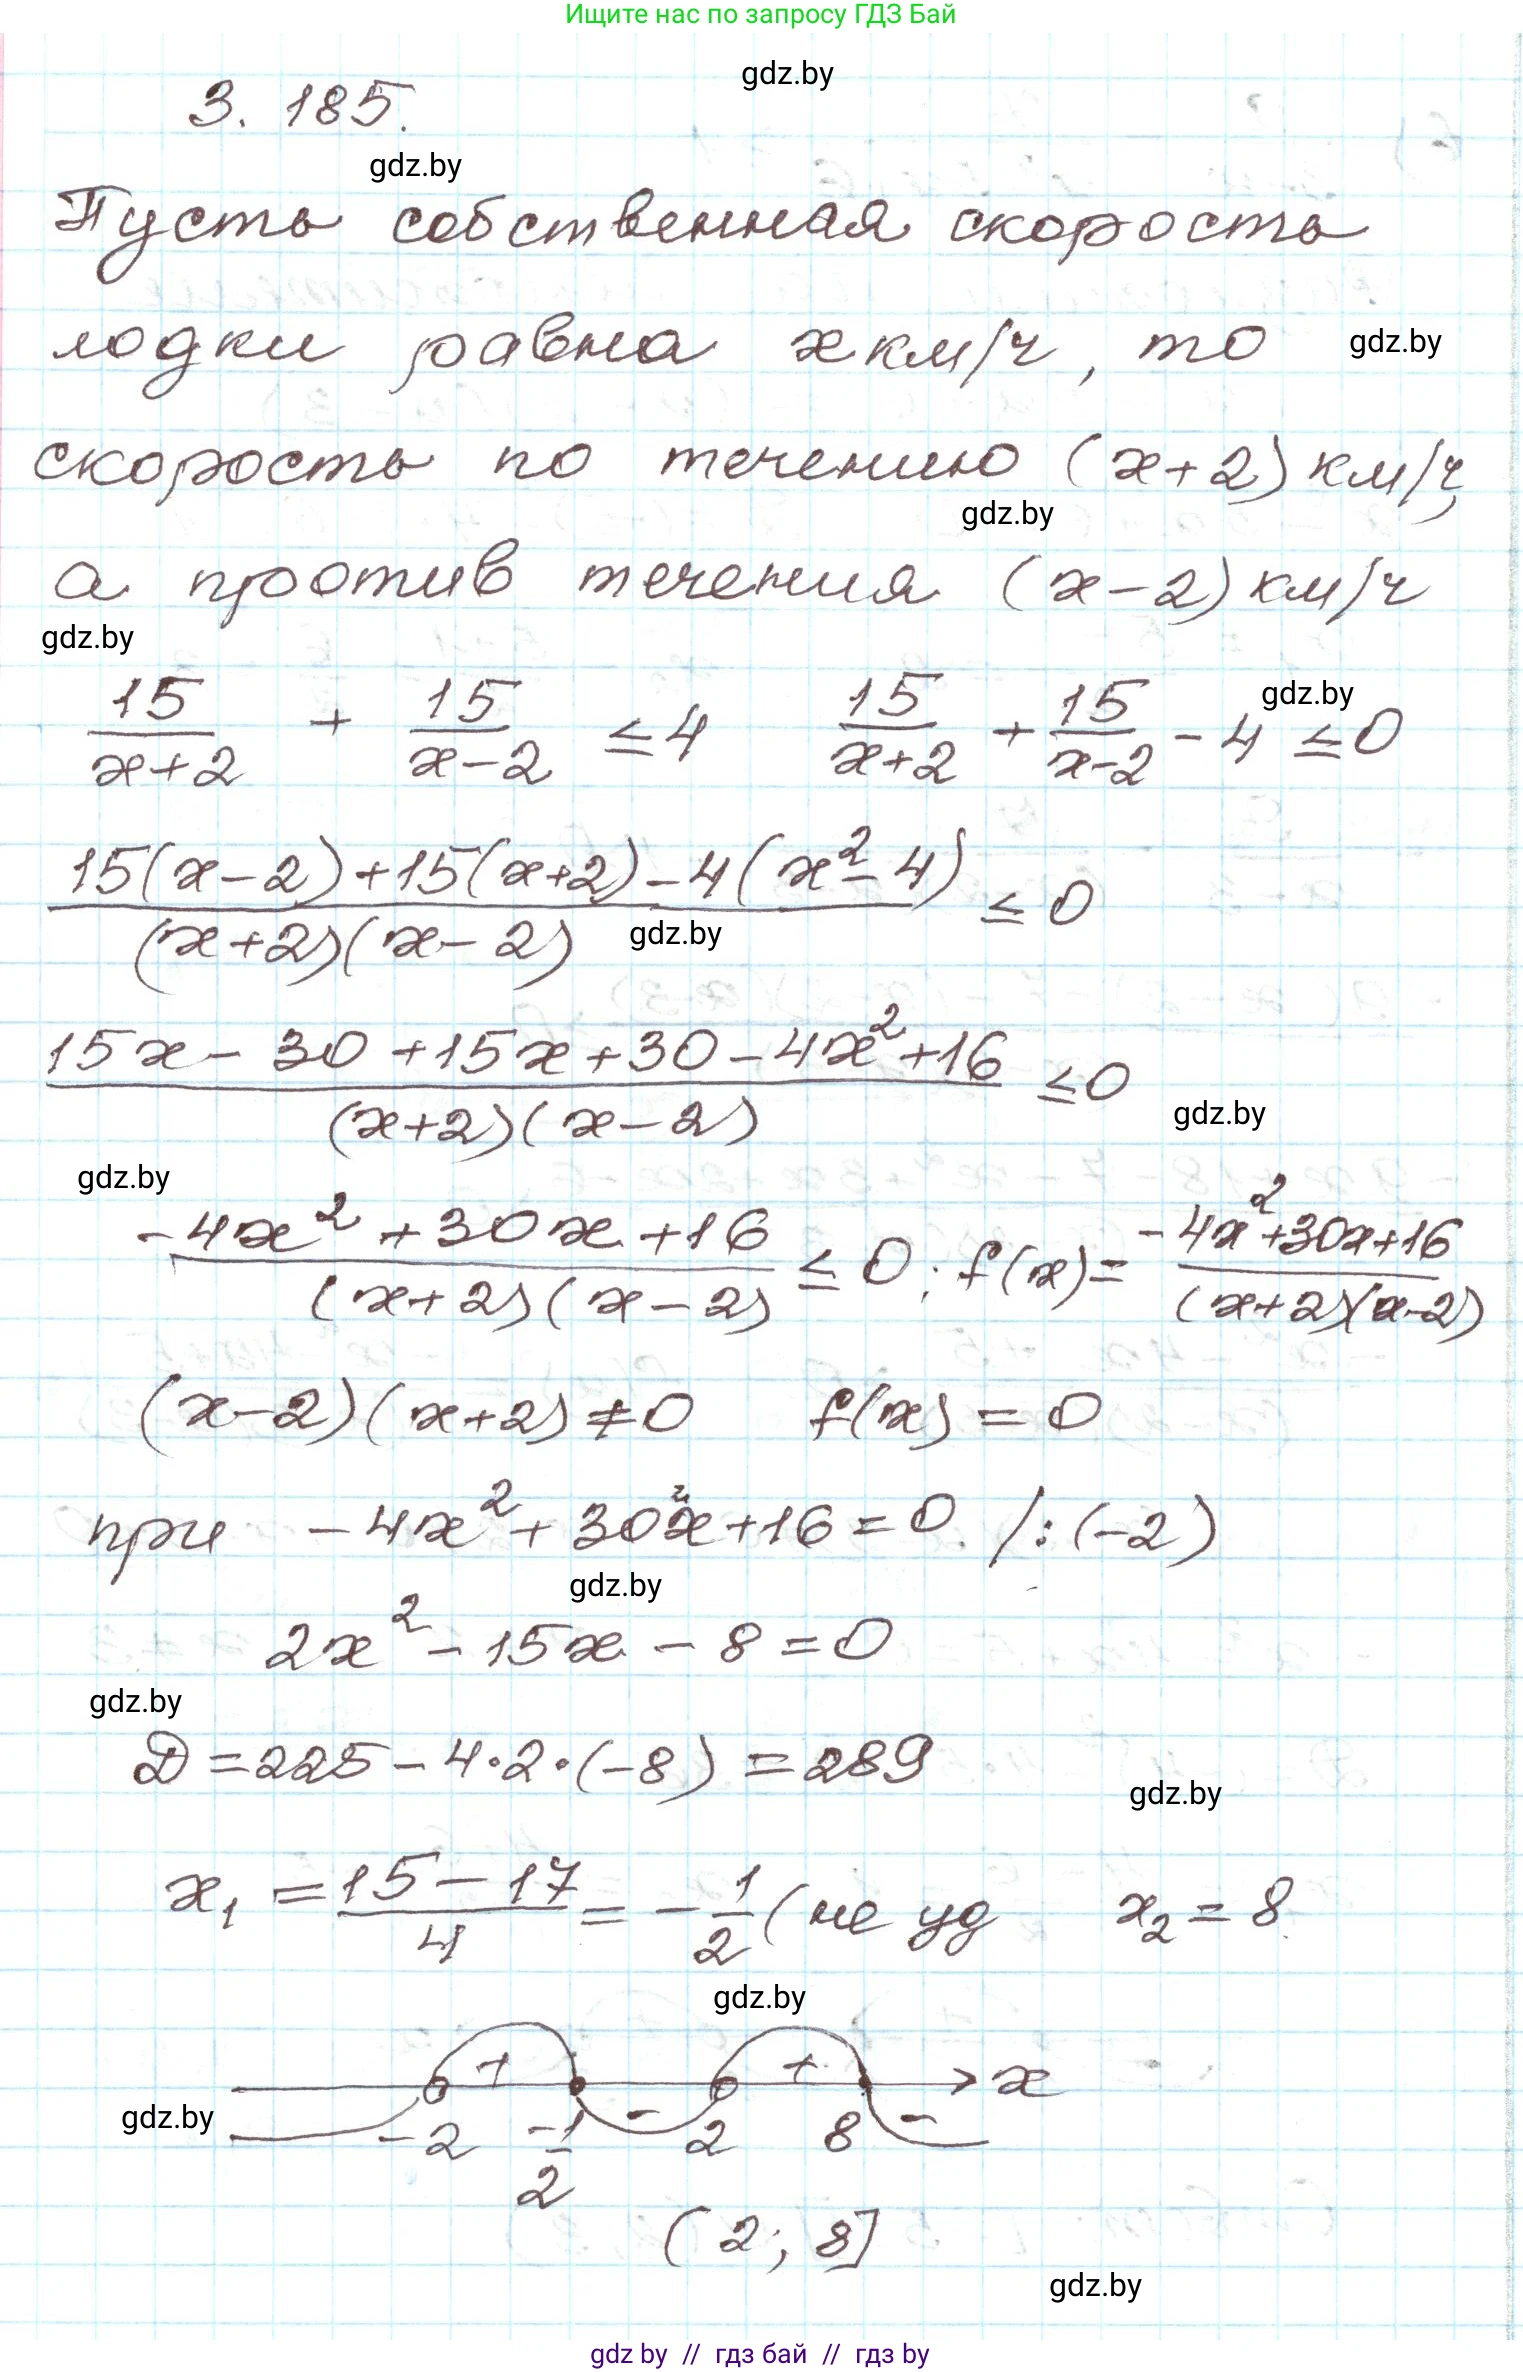 Ищите нас по запросу ГДЗ Бай
gdz.by
3. 185.
gdz.by
Пусть собственная скорость
лодки равна x км/ч, то
gdz.by
скорость по течению (x+2) км/ч,
gdz.by
а против течения (x-2) км/ч
gdz.by
15/(x+2) + 15/(x-2) ≤ 4   15/(x+2) + 15/(x-2) - 4 ≤ 0
gdz.by
(15(x-2)+15(x+2)-4(x²-4))/((x+2)(x-2)) ≤ 0
gdz.by
(15x-30+15x+30-4x²+16)/((x+2)(x-2)) ≤ 0
gdz.by
gdz.by
(-4x²+30x+16)/((x+2)(x-2)) ≤ 0; f(x)= (-4x²+30x+16)/((x+2)(x-2))
(x-2)(x+2)≠0   f(x)=0
при -4x²+30x+16=0 /:(-2)
gdz.by
2x²-15x-8=0
gdz.by
D=225-4·2·(-8)=289
gdz.by
x₁ = (15-17)/4 = -1/2 (не уд   x₂=8
gdz.by
+ + x
gdz.by
-2 -1/2 - 2 8 -
(2; 8]
gdz.by
gdz by // гдз бай // гдз by